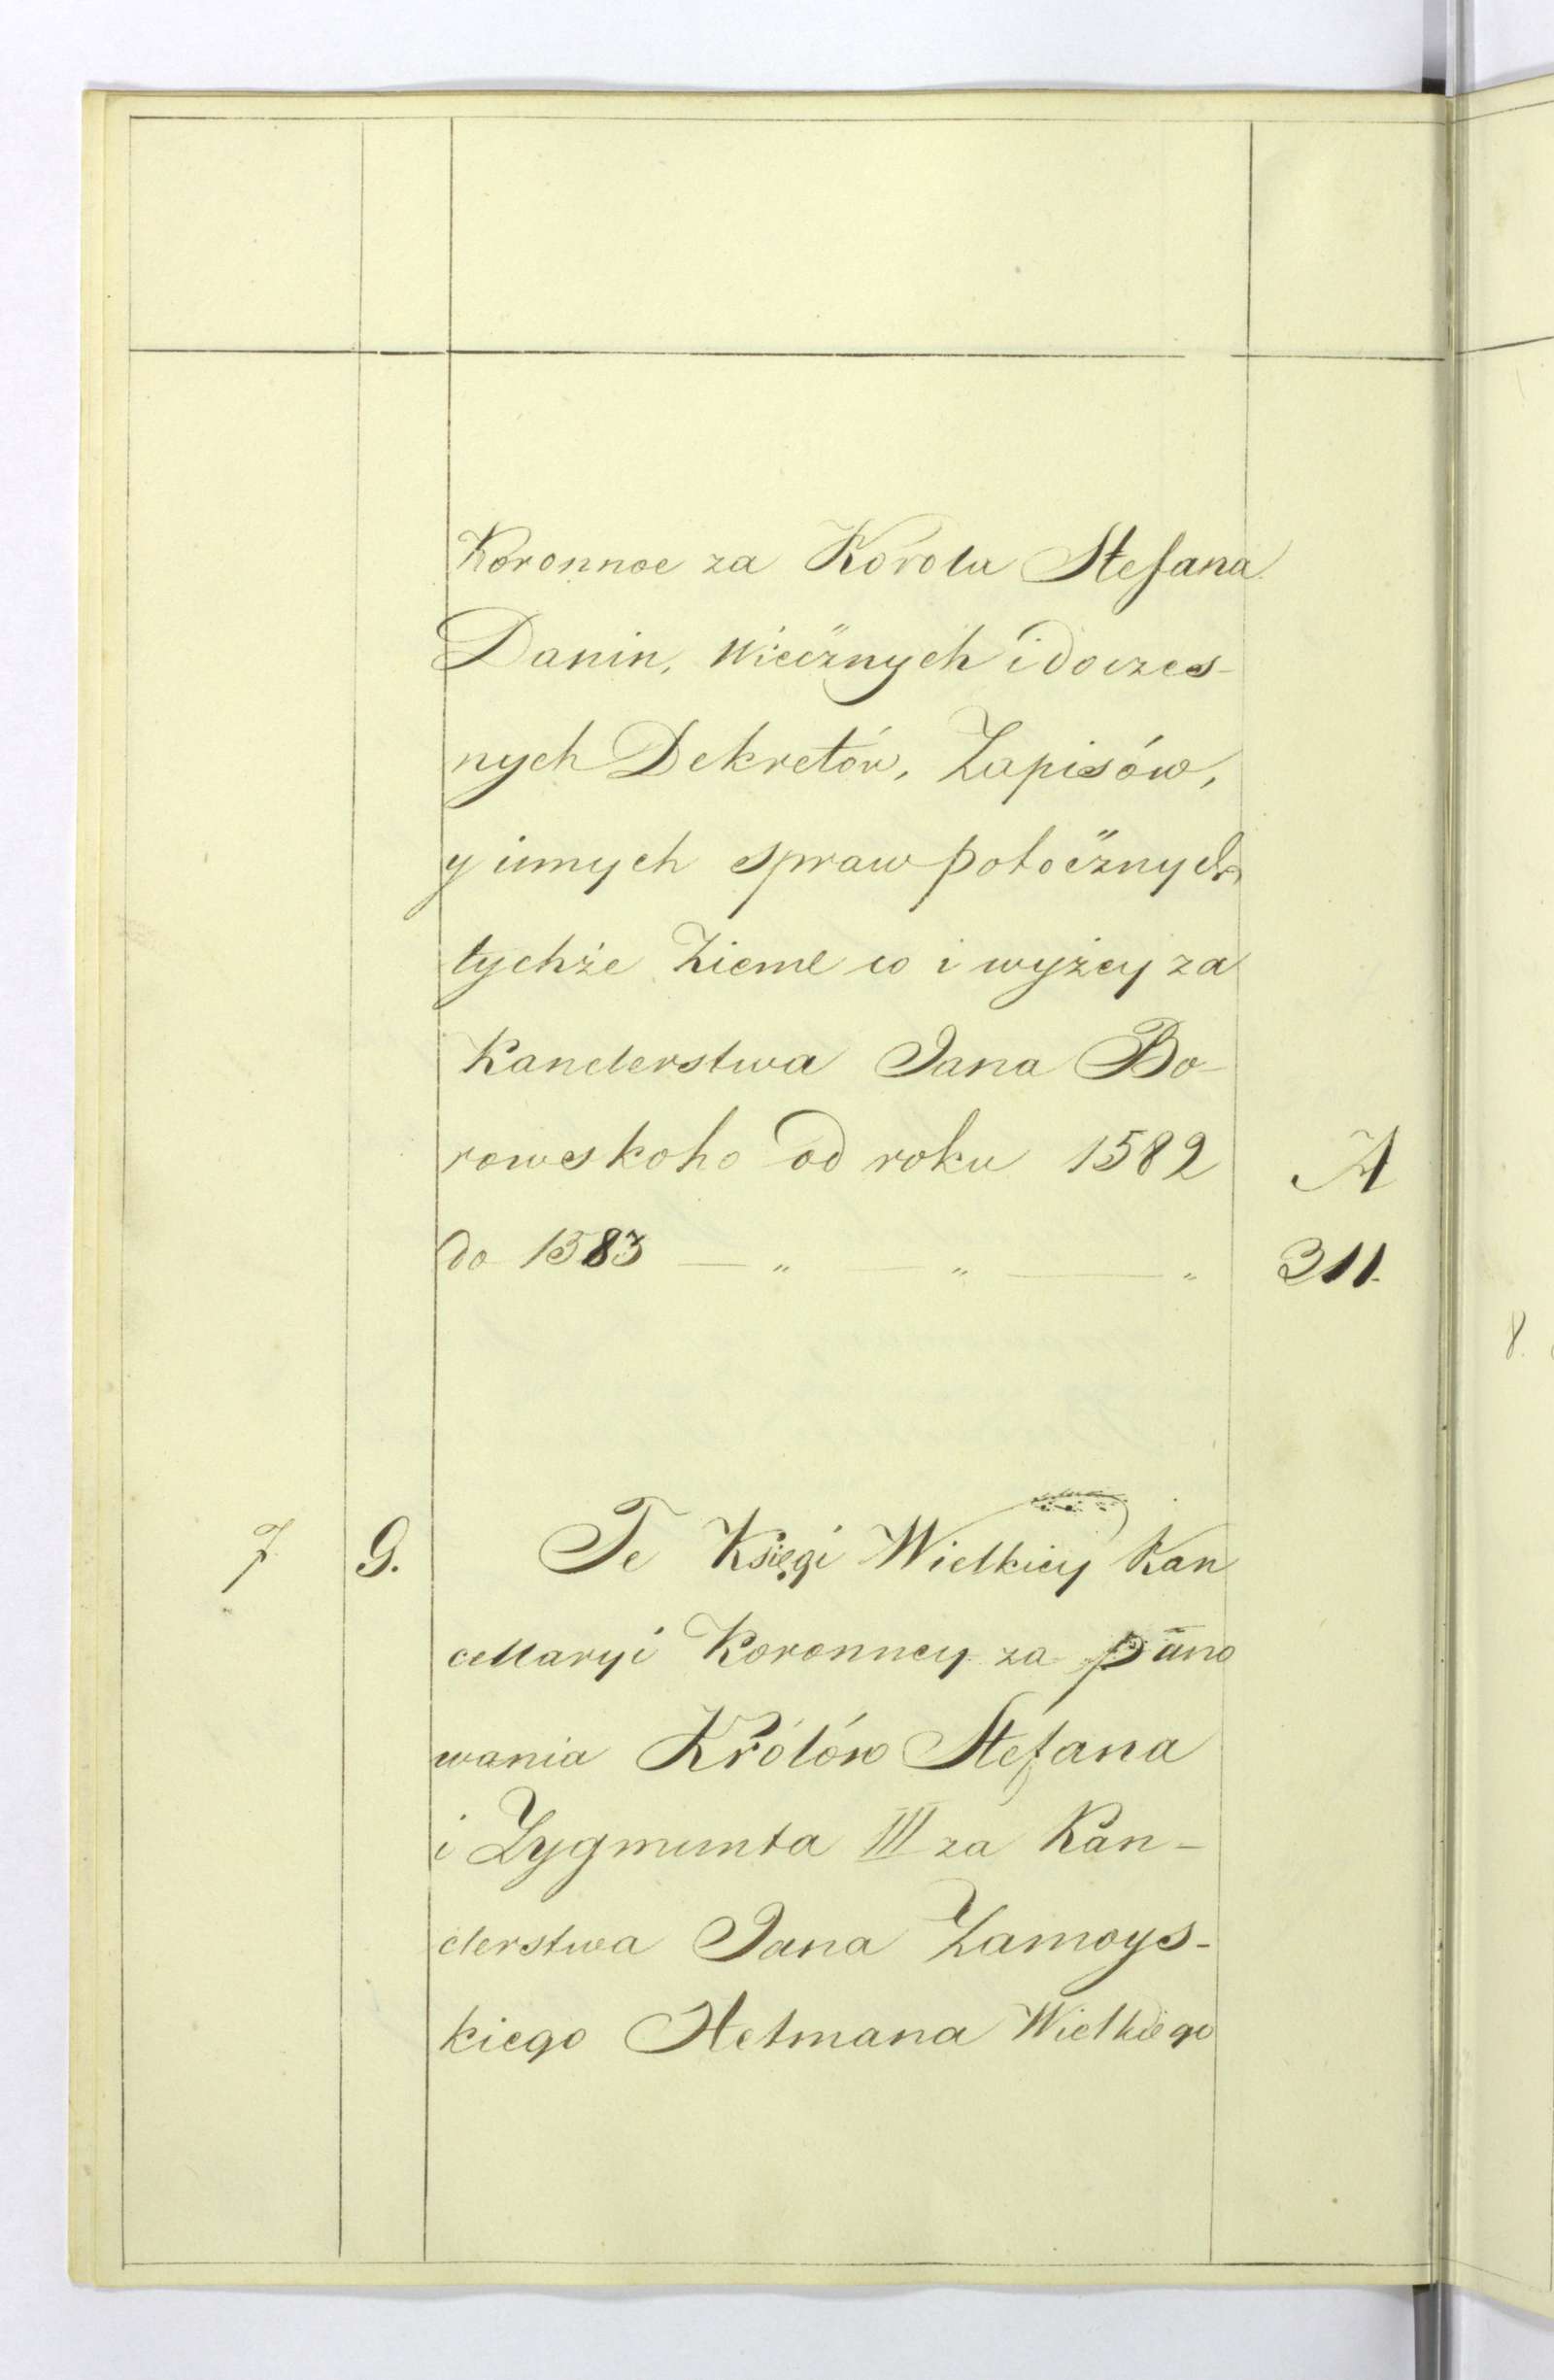 Koronnoe za Korola Stefana
Danin, Wiecżnych i docześ-
nych Dekretów, Zapisów,
y innych spraw potocżnych
tychże Ziemᵉ co i wyżey za
Kanclerstwa Jana Bo-
rowskoho od roku 1582 A
do 1583 — „ — „ — „ 311.
7 G. Te Księgi Wielkiey Kan
cellaryi Koronney za pano
wania Królów Stefana
i Zygmunta III za Kan-
clerstwa Jana Zamoys-
kiego Hetmana Wielkiego
8.